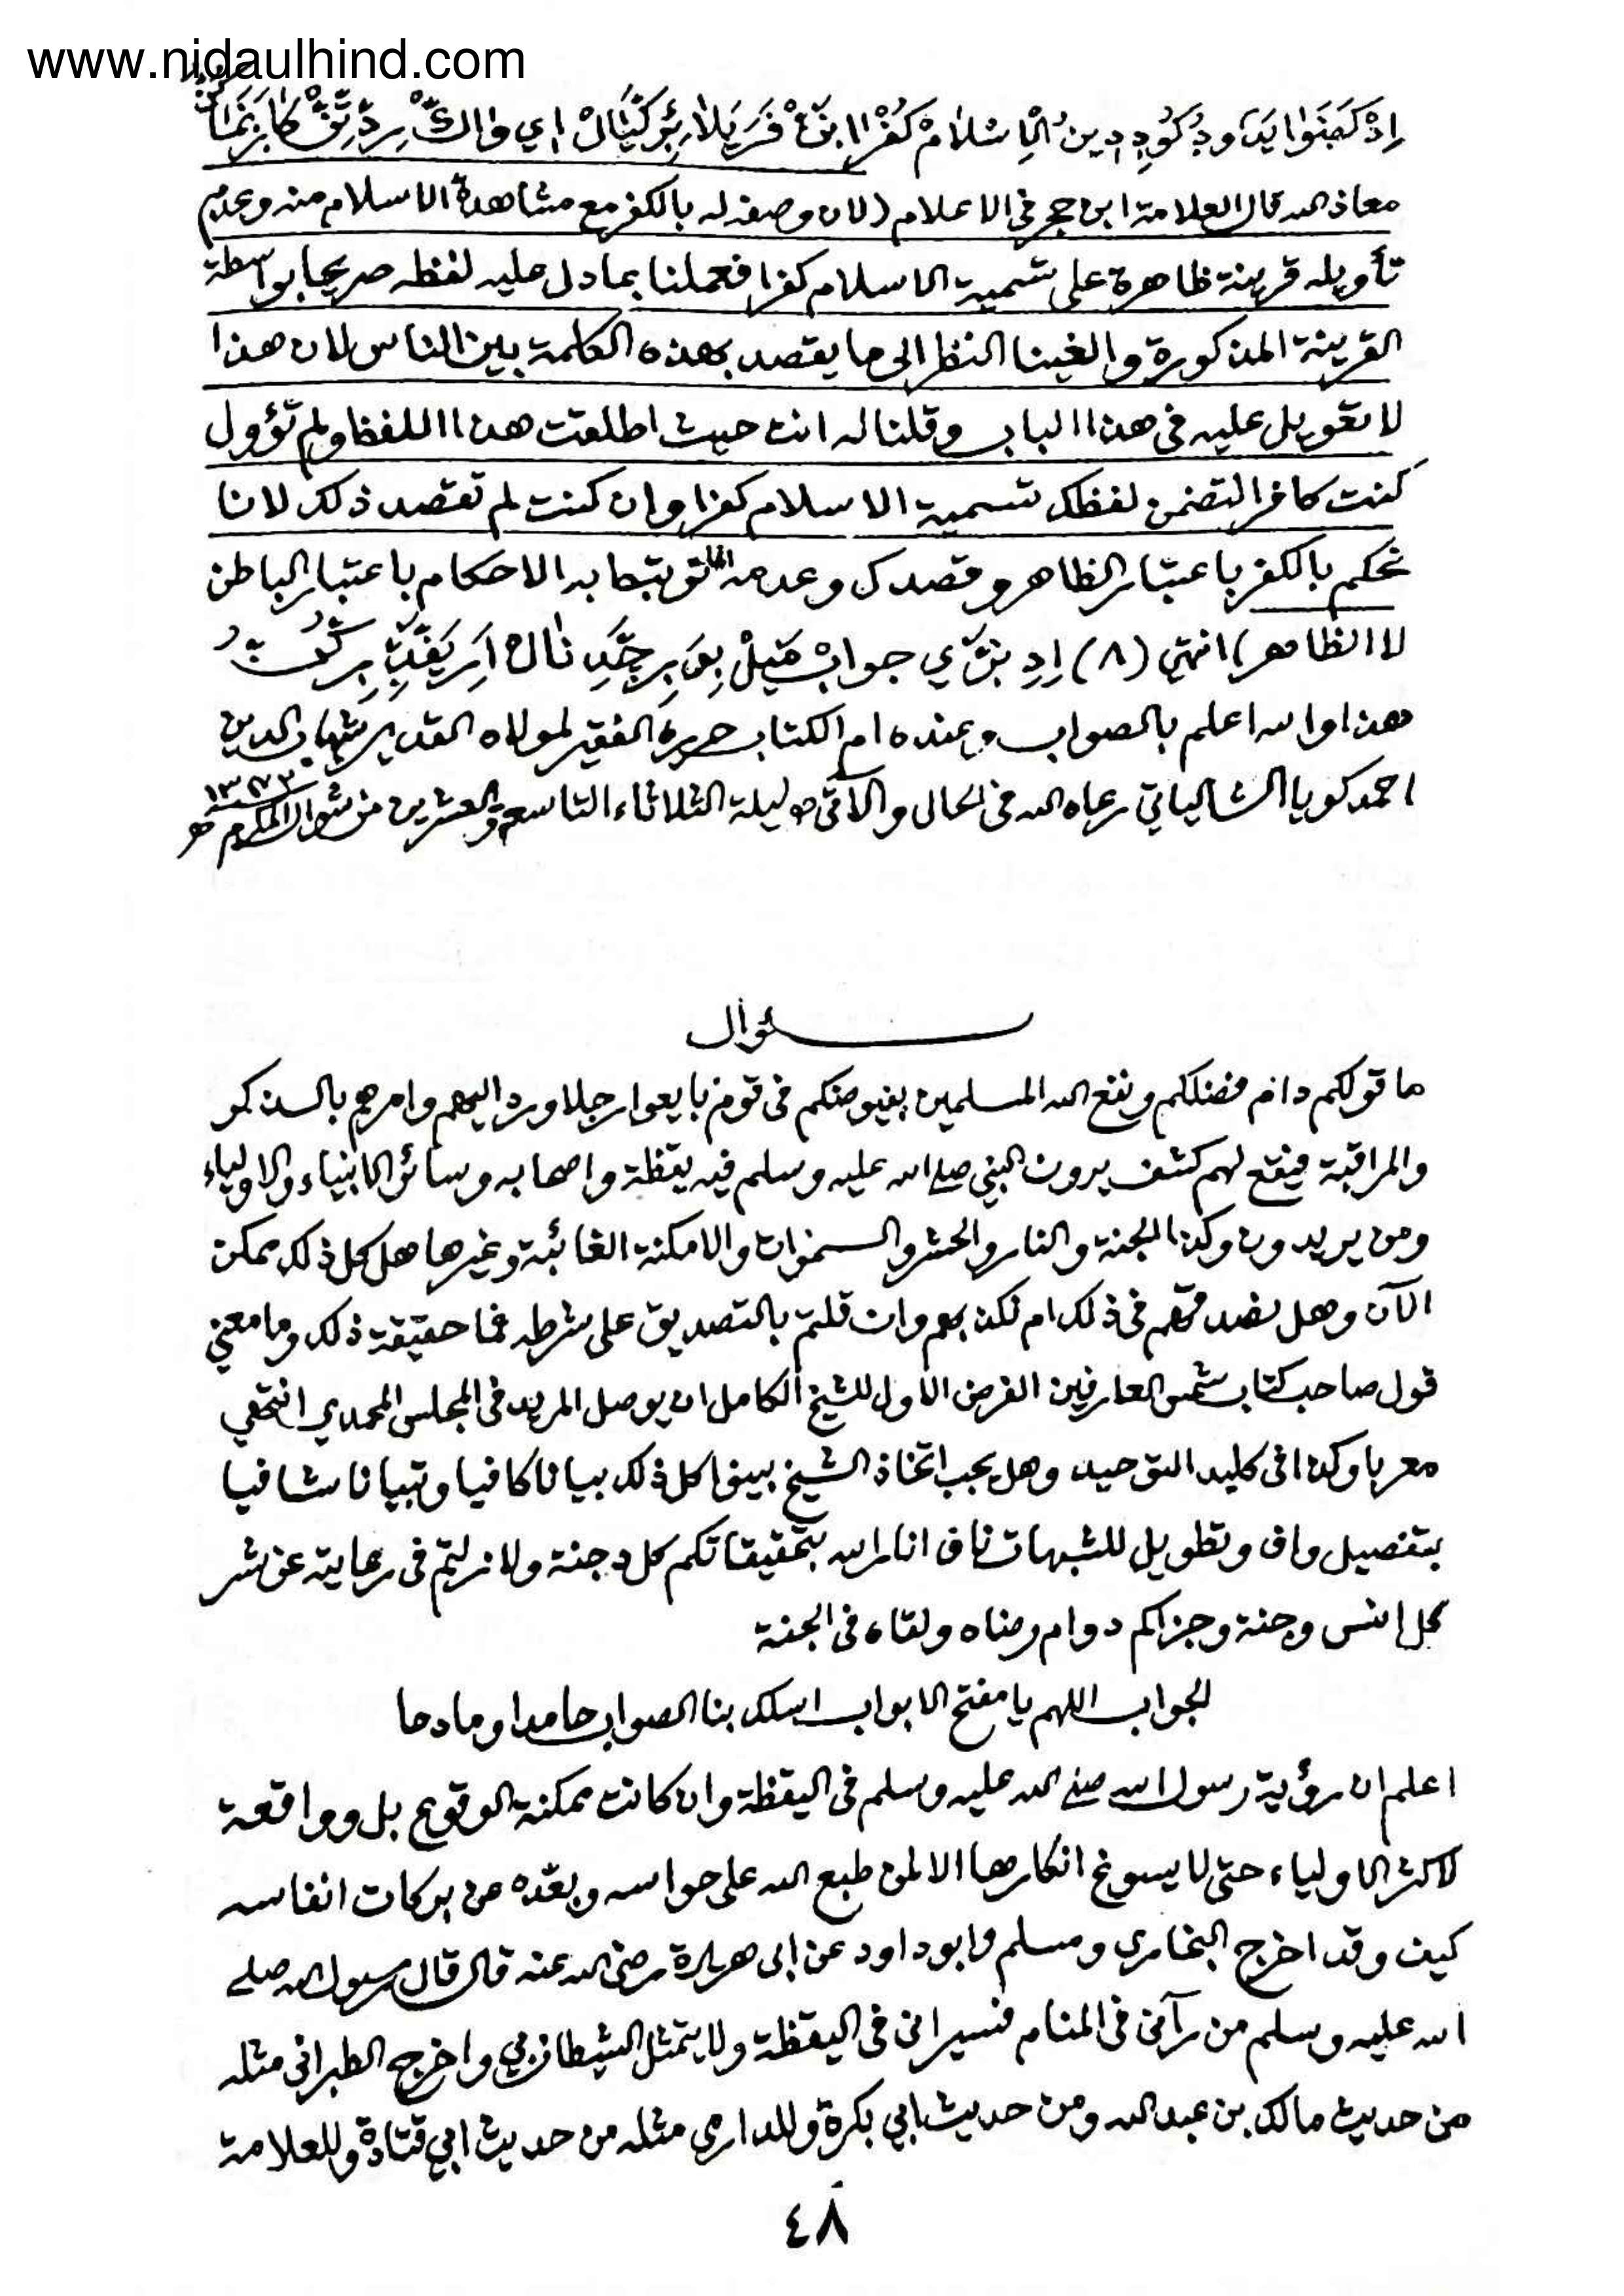 www.nidaulhind.com
معاذ الله قال العلامة ابن حجر فى الاعلام (لان وصفه له بالكفر مع مشاهدة الاسلام منه وعدم
تأويله قرينة ظاهرة على تسمية الاسلام كفرا فعملنا بما دل عليه لفظه صريحا بواسطة
القرينة المذكورة والغينا النظر الى ما يقصد بهذه الكلمة بين الناس لان هذا
لا تعويل عليه فى هذا الباب وقلنا له انت حيث اطلقت هذا اللفظ ولم تؤول
كنت كافرا لتضمن لفظك تسمية الاسلام كفرا وان كنت لم تقصد ذلك لانا
نحكم بالكفر باعتبار الظاهر وقصدك وعدمه انما ترتبط به الاحكام باعتبار الباطن
لا الظاهر) انتهى (٨)
هذا والله اعلم بالصواب وعنده ام الكتاب حرره الفقير لمولاه القدير شهاب الدين
احمد كويا الشالياتي رعاه الله فى الحال والآتي ليلة الثلاثاء التاسع والعشرين من شوال المكرم ١٣٧٣ هـ
سؤال
ما قولكم دام فضلكم ونفع الله المسلمين بفيوضكم فى قوم بايعوا رجلا ورد اليهم وامرهم بالذكر
والمراقبة فيقع لهم كشف يرون النبي صلى الله عليه وسلم فيه يقظة واصحابه وسائر الانبياء والاولياء
ومن يريدون وكذا الجنة والنار والحشر والسموات والامكنة الغائبة وغيرها هل كل ذلك ممكن
الآن وهل نصدقهم فى ذلك ام نكذبهم وان قلتم بالتصديق على شرطه فما حقيقة ذلك وما معني
قول صاحب كتاب شمس العارفين الفرض الاول للشيخ الكامل ان يوصل المريد فى المجلس المحمدي انتهي
معربا وكذا فى كليد التوحيد وهل يجب اتخاذ الشيخ بينوا كل ذلك بيانا كافيا وتبيانا شافيا
بتفصيل واف وتطويل للشبهات ناف انار الله بتحقيقاتكم كل دجنة ولا زلتم فى رعايته عن شر
كل انس وجنة وجزاكم دوام رضاه ولقاه فى الجنة
الجواب اللهم يا مفتح الابواب اسلك بنا الصواب حامدا ومادحا
اعلم ان رؤية رسول الله صلى الله عليه وسلم فى اليقظة وان كانت ممكنة الوقوع بل وواقعة
لاكثر الاولياء حتى لا يسوغ انكارها الا لمن طبع الله على حواسه وبعّده من بركات انفاسه
كيف وقد اخرج البخارى ومسلم وابو داود عن ابى هريرة رضى الله عنه قال قال رسول الله صلى
الله عليه وسلم من رآنى فى المنام فسيرانى فى اليقظة ولا يتمثل الشيطان بي واخرج الطبرانى مثله
من حديث مالك بن عبد الله ومن حديث ابي بكرة وللدارمى مثله من حديث ابي قتادة وللعلامة
٤٨